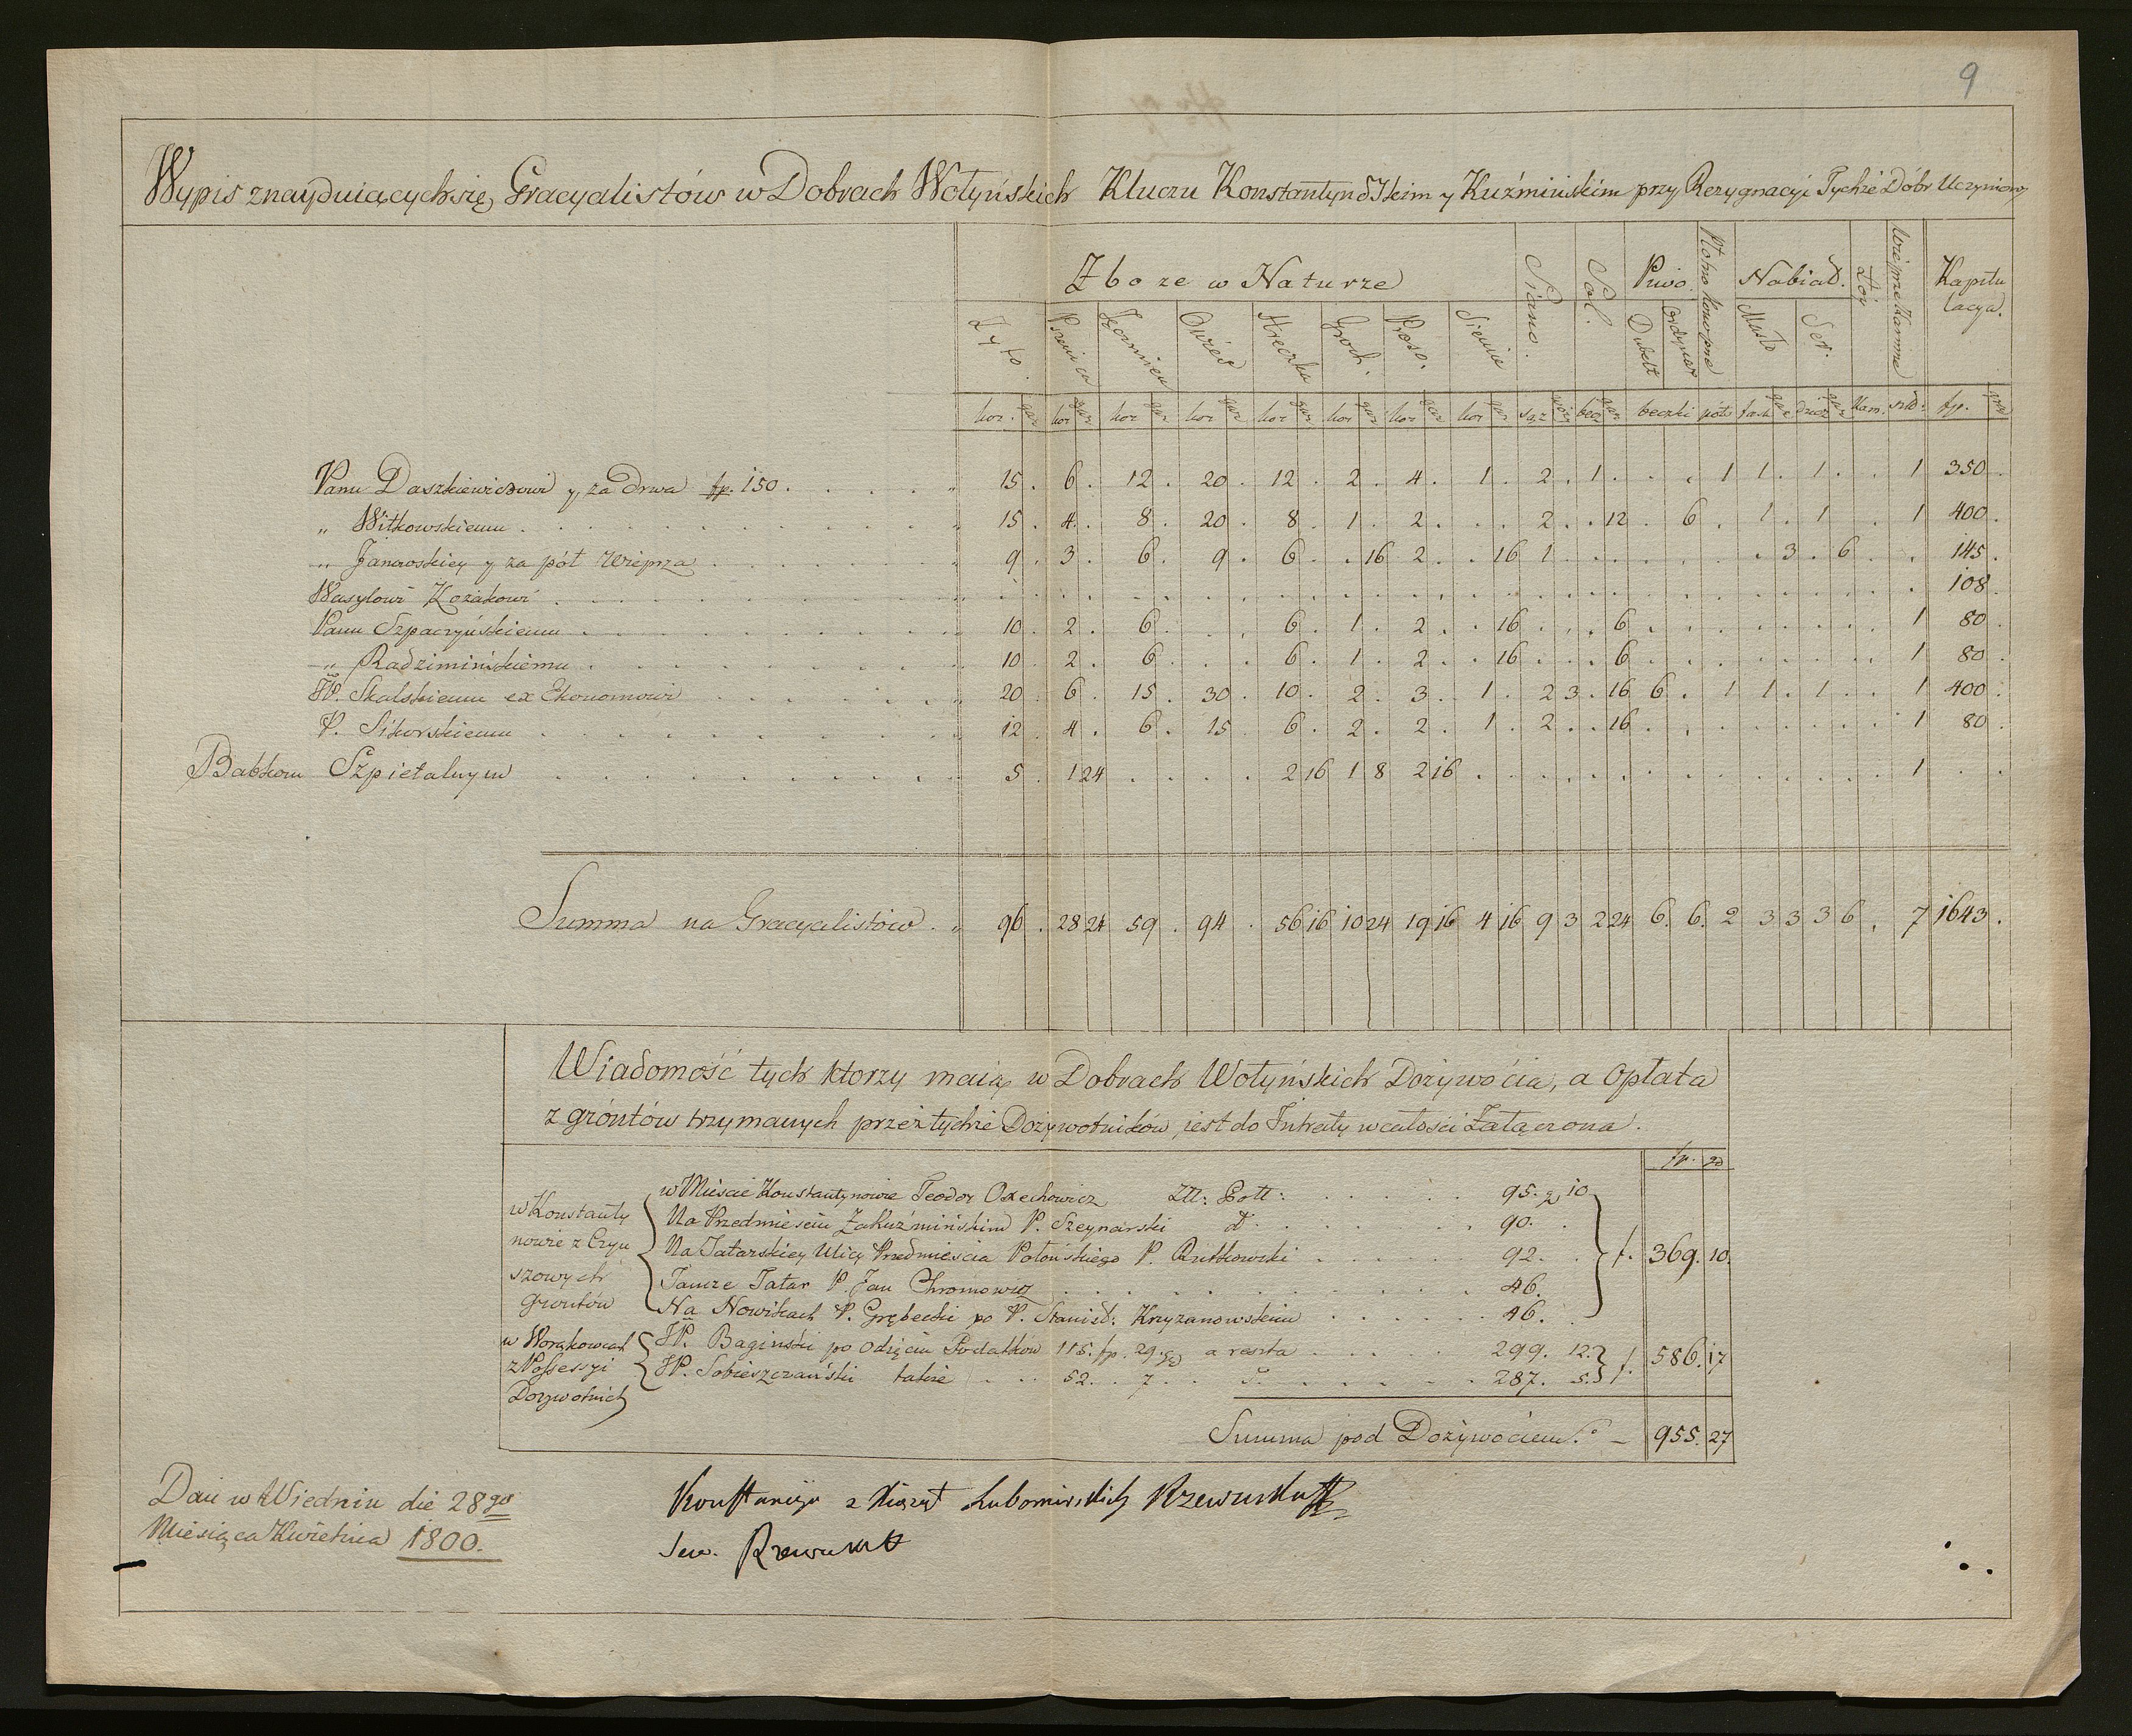 9
Wypis znayduiących się Gracyalistów w Dobrach Wołyńskich Kluczu Konstantynoskim y Kuźmińskim przy Rezygnacyi Tychże Dóbr Uczyniony
Zboze w Naturze Siano. Sol. Piwo. Płotno konopne Nabiał. Łóy Wieprze Karmne Kapitulacya.
Żyto. Pszenica Jęczmień Owies Hreczka Groch. Proso. Siemie Dubelt Ordynar Masło Ser.
kor. gar kor gar kor gar kor gar kor gar kor gar kor gar kor gar sąż becz gar beczki półs fask gar dzież gar kam. fp.
Panu Daszkiewiczowi y za drwa fp. 150 15 . 6 . 12 . 20 . 12 . 2 . 4 . 1 . 2 . 1 . . . 1 1 . 1 . . 1 350 .
" Witkowskiemu 15 . 4 . 8 . 20 . 8 . 1 . 2 . . . 2 . . 12 . 6 . 1 . 1 . 1 400 .
" Janowskiey y za pół Wieprza 9 . 3 . 6 . 9 . 6 . . 16 2 . . 16 1 . . . . . . . 3 . 6 . . 145 .
Wasylowi Kozakowi 108 .
Panu Szpaczyńskiemu 10 . 2 . 6 . . . 6 . 1 . 2 . . 16 . . . 6 . . . . . . . . 1 80 .
" Radzimińskiemu 10 . 2 . 6 . . . 6 . 1 . 2 . . 16 . . . 6 . . . . . . . . 1 80 .
JP. Skalskiemu ex Ekonomowi 20 . 6 . 15 . 30 . 10 . 2 . 3 . 1 . 2 3 . 16 6 . 1 1 . 1 . . 1 400 .
P. Sikorskiemu 12 . 4 . 6 . 15 . 6 . 2 . 2 . 1 . 2 . . 16 . . . . . . . . 1 80 .
Babkom Szpitalnym 5 . 1 24 . . . . 2 16 1 8 2 16 . . . . . . . . . . . . . . 1 . .
Summa na Gracyalistów 96 . 28 24 59 . 94 . 56 16 10 24 19 16 4 16 9 3 2 24 6. 6. 2 3 3 3 6 . 7 1643 .
Wiadomość tych ktorzy maią w Dobrach Wołyńskich Dożywocia, a Opłata
z gróntów trzymanych przez tychże Dożywotników jest do Intraty w całości Załączona.
fp. gr
w Konstantynowie z Czynszowych Gruntów
w Mieście Konstantynowie Teodor Orechowicz Ztt: Pott: 95. gr 10
Na Przedmieściu Zakuźmińskim P. Szeynarski dt 90.
Na Tatarskiey Ulicy Przedmieścia Połońskiego P. Rutkowski 92. f. 369. 10.
Tamże Tatar P. Jan Chromowicz 46.
Na Nowikach P. Grębecki po P. Stanisł: Krzyżanowskim 46.
w Worąkowcach z Possessyi Dożywotnich
JP. Baginski po Odięciu Podatków 115. fp. 29. gr a reszta 299. 12. f. 586. 17
JP. Sobieszczański także 52. 7. 287. 5.
Summa pod Dożywociem f. – 955. 27
Dan w Wiedniu die 28go
Miesiąca Kwietnia 1800.
Konstancya z Xiążąt Lubomirskich Rzewuska
Sew. Rzewuski